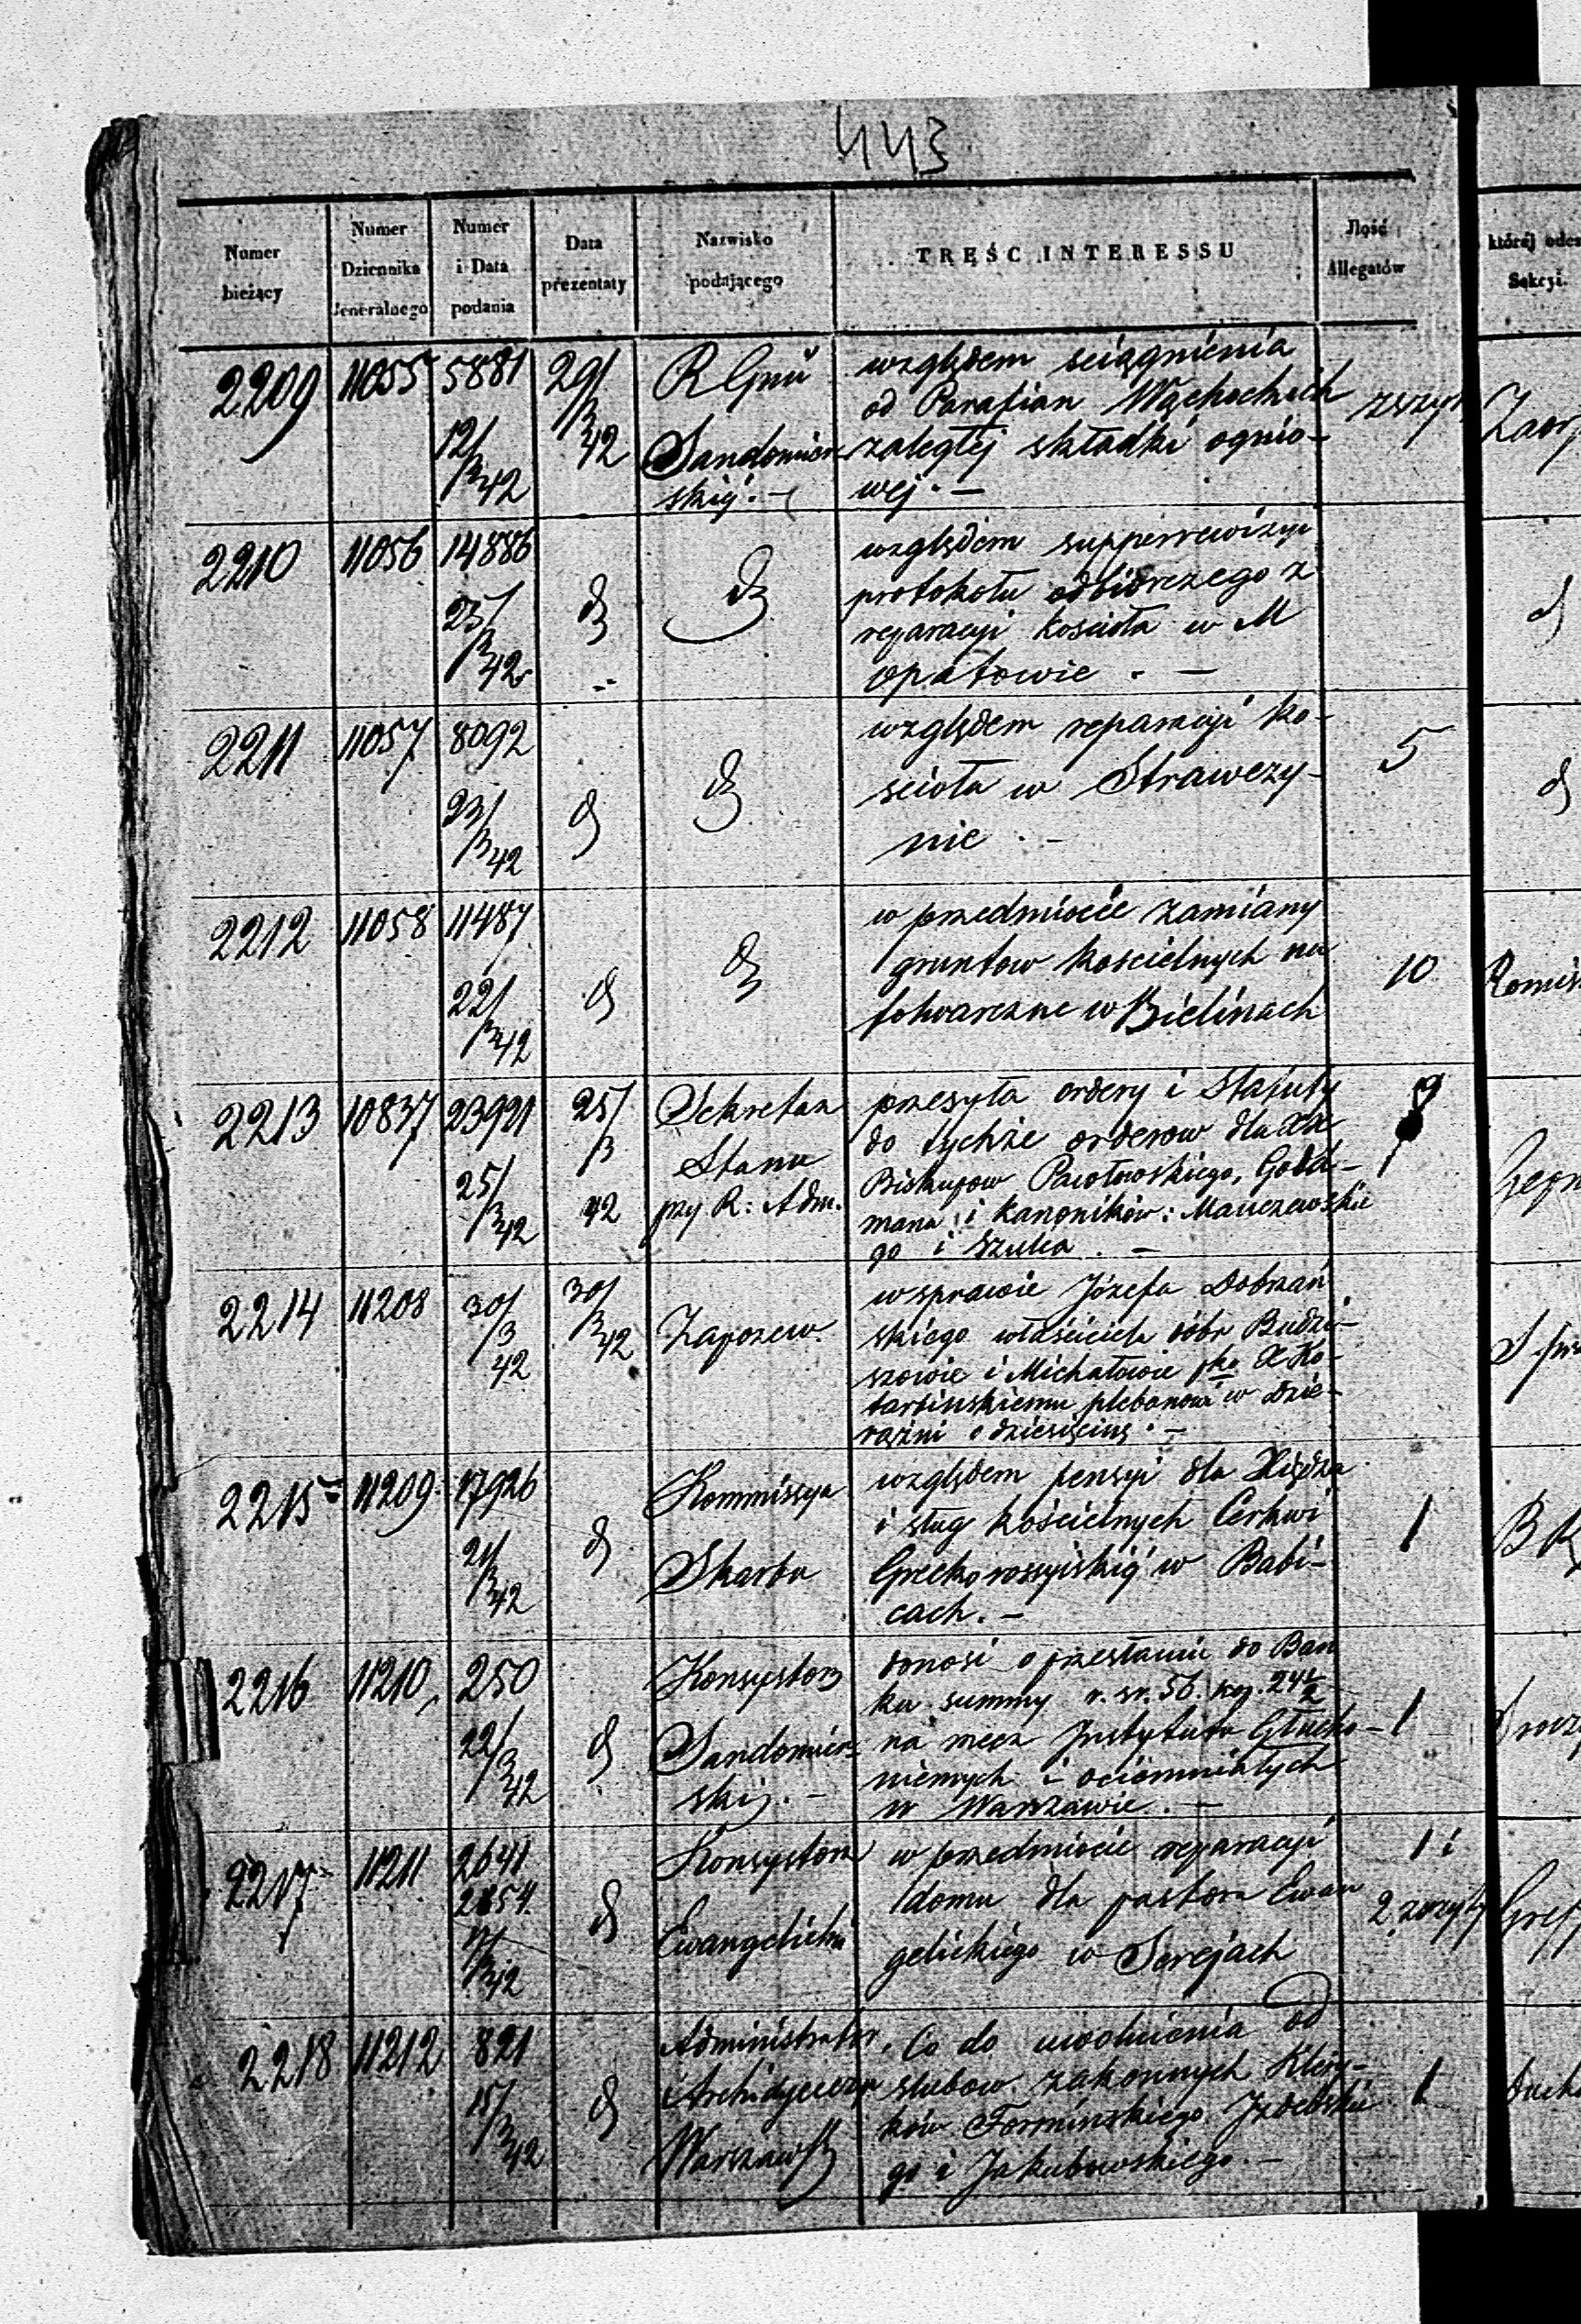 443
Numer bieżący
Numer Dziennika Jeneralnego
Numer i Data podania
Data prezentaty
Nazwisko podającego
TRĘŚC INTERESSU
Ilość Allegatów
której odes
Sekcyi.
2209 11055 5881 12/3 42 29/3 42 R Gnu Sandomier-
skiy. –
względem sciągnienia
od Parafian Wąchockich
zaległej składki ognio-
wej. –
zszyt
2210 11056 14886 25/3 42
względem supperrewizyi
protokołu odbiorczego z
reparacyi kościoła w M
Opatowie . –
2211 11057 8092 23/3 42
względem reparacyi ko-
scioła w Strawczy-
nie . –
5
2212 11058 11487 22/3 42
w przedmiocie zamiany
gruntow koscielnych na
folwarczne w Bielinach
10
2213 10837 23921 25/3 42 25/3 42
Sekretarz
Stanu
przy R: Adm.
przesyła ordery i Statuty
do tychże orderow dla XX
Biskupow Pawłowskiego, Gold-
mana i kanoników: Mauczewskie
go i Szulca . –
9
2214 11208 30/3 42 30/3 42
Zapozew.
w sprawie Józefa Dobrzań
skiego właściciela dóbr Budzi-
szowie i Michałowie pko X Ko-
tarbinskiemu plebanowi w Dzie-
rążni o dziesięcinę . –
2215 11209 17926 21/3 42
Kommissya
Skarbu
względem pensyi dla Xiędza
i sług kościelnych Cerkwi
Grecko rossyiskiy w Babi-
cach. –
1
2216 11210 250 22/3 42
Konsystorz
Sandomier-
ski. –
donosi o przesłaniu do Ban
ku summy r. sr. 56. kop. 24½
na rzecz Instytutu Głucho-
niemych i ociemniałych
w Warszawie . –
1
2217 11211 2641
2654 17/3 42
Konsystorz
Ewangelicki
w przedmiocie reparacyi
domu dla pastora Ewan
gelickiego w Serejach
1 i
2 zszyty
2218 11212 821 15/3 42
Administrator
Archidyecezyi
Warszawsk
Co do uwolnienia od
slubow zakonnych Klery-
ków Formińskiego Izdebskie
go i Jakubowskiego. –
1